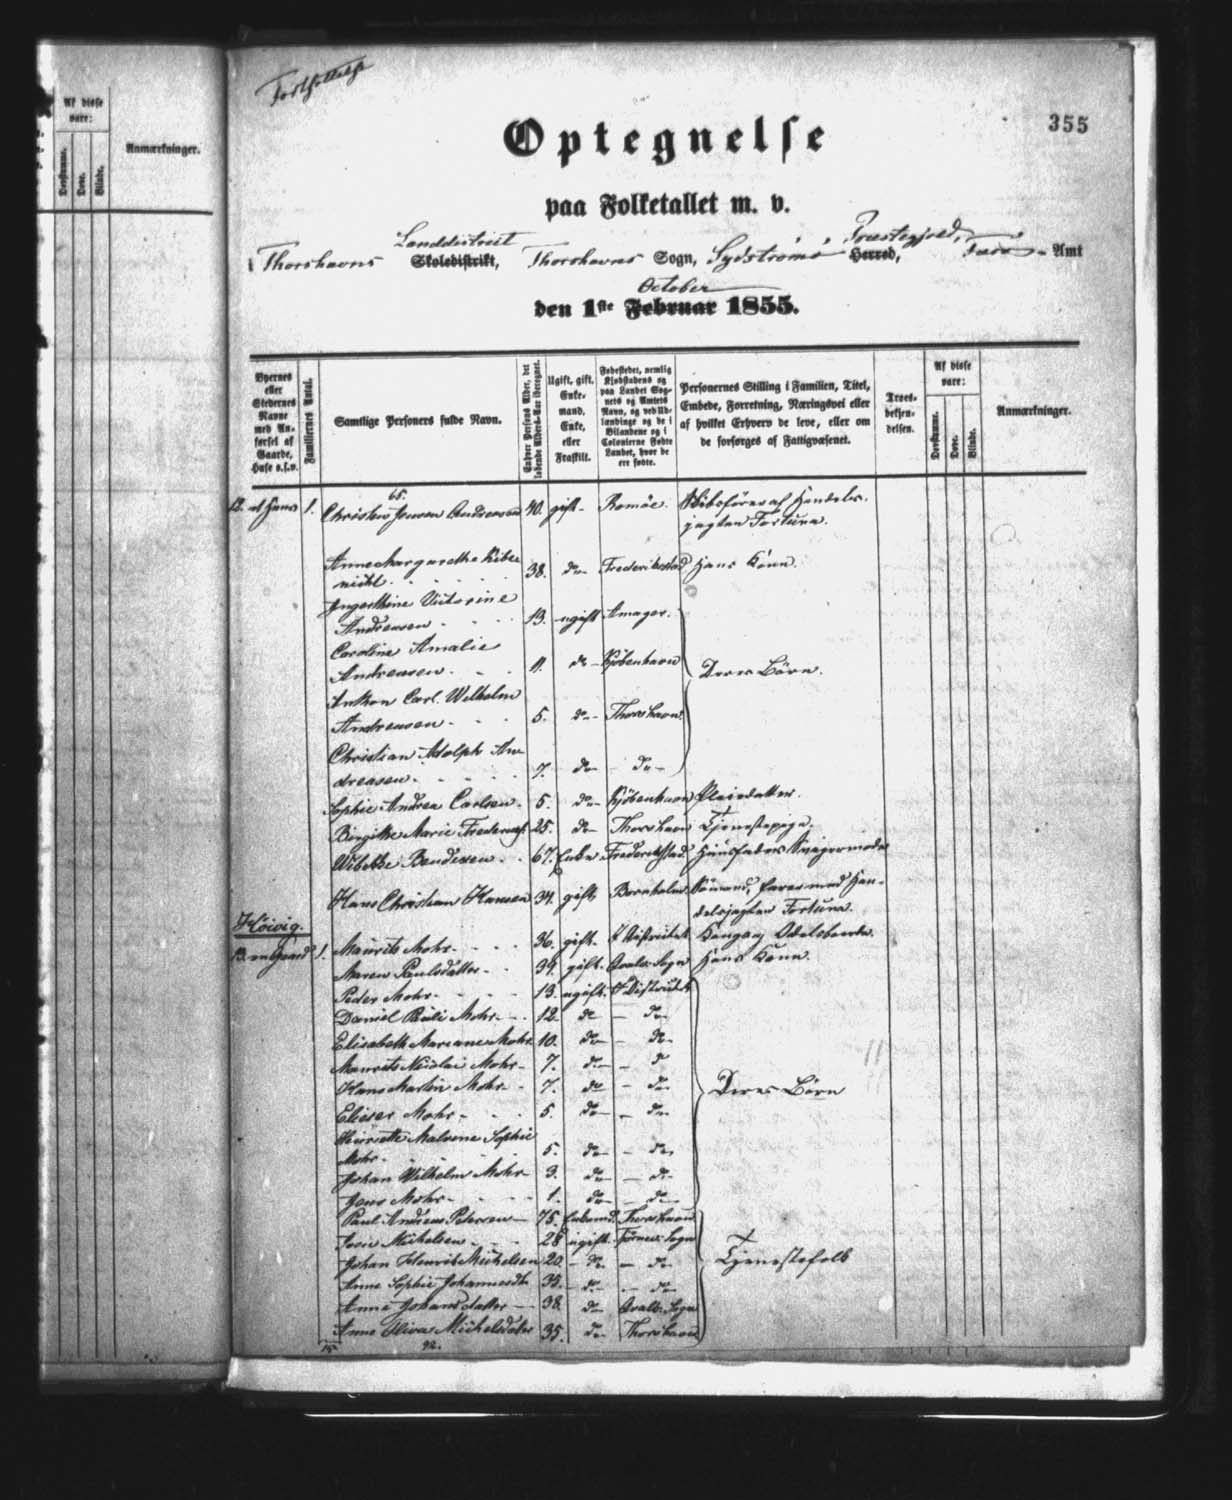 Af disse
vare:
Anmærkninger.
Døvstumme.
Døve.
Blinde.
Fortsættelse
355
Optegnelse
paa Folketallet m. v.
Landdistrict Præstegjeld,
Thorshavns Skoledistrikt, Thorshavns Sogn, Sydstrømø Herred, Færø Amt
October
den 1ste Februar 1855.
Byernes eller Stedernes Navne med Anførsel af Gaarde, Huse o.s.v.
Familiernes Antal.
Samtlige Personers fulde Navn.
Enhver Persons Alder, det løbende Alders-Aar iberegnet.
Ugift, gift, Enkemand, Enke, eller Fraskilt.
Fødestedet, nemlig Kjøbstadens og paa Landet Sognets og Amtets Navn, og ved Udlændinge og de i Bilandene og i Colonierne Fødte Landet, hvor de ere fødte.
Personernes Stilling i Familien, Titel, Embede, Forretning, Næringsvei eller af hvilket Erhverv de leve, eller om de forsørges af Fattigvæsenet.
Troesbekjendelsen.
Af disse vare:
Døvstumme.
Døve.
Blinde.
Anmærkninger.
65.
12. et Huus 1. Christen Jensen Andreasen 40. gift Romøe. Skibsfører af Handels-
jagten Fortuna.
Anne Margarethe
38. do Frederikstad Hans Kone.
Victorine
Andreasen 13. ugift Amager.
Caroline Amalie
Andreasen 11. do Kjøbenhavn Deres Børn.
Anthon Carl Wilhelm
Andreasen 5. do Thorshavn
Christian Adolph An-
dreasen 7. do do
Sophie Andrea Carlsen 5. do Kjøbenhavn Pleiedatter.
Birgitte Marie Fredericks. 25. do Thorshavn Tjenestepige.
Wibekke Bendixen 67. Enke Frederikstad Huusfaders Svigermoder
Hans Christian Hansen 34. gift Bornholm Sømand, farer med Han-
delsjagten Fortuna.
Höivig.
13. en Gaard 1. Maurits Mohr 36. gift. i Distriktet Kongs og Odelsbonde.
Maren Poulsdatter 39. gift. Qvalv. Sogn Hans Kone.
Peder Mohr 13. ugift. i Distriktet
Daniel Pauli Mohr 12. do do
Elisabeth Mariane Mohr 10. do do
Maurits Nicolai Mohr 7. do do
Hans Martin Mohr 7. do do Deres Børn
Elieser Mohr 5. do do
Henriette Malvine Sophie
Mohr 5. do do
Johan Wilhelm Mohr 3. do do
Jens Mohr 1. do do
Paul Andreas Petersen 75. Enkemd. Thorshavn
Michelsen 28 ugift. Sogn
Johan Henrik Michelsen 20. do do Tjenestefolk
Anne Sophie Johannesdtr 39. do do
Anne Johansdatter 38. do Qvalv. Sogn
Anne Olivia Michelsdatter 35. do Thorshavn
15. 92.